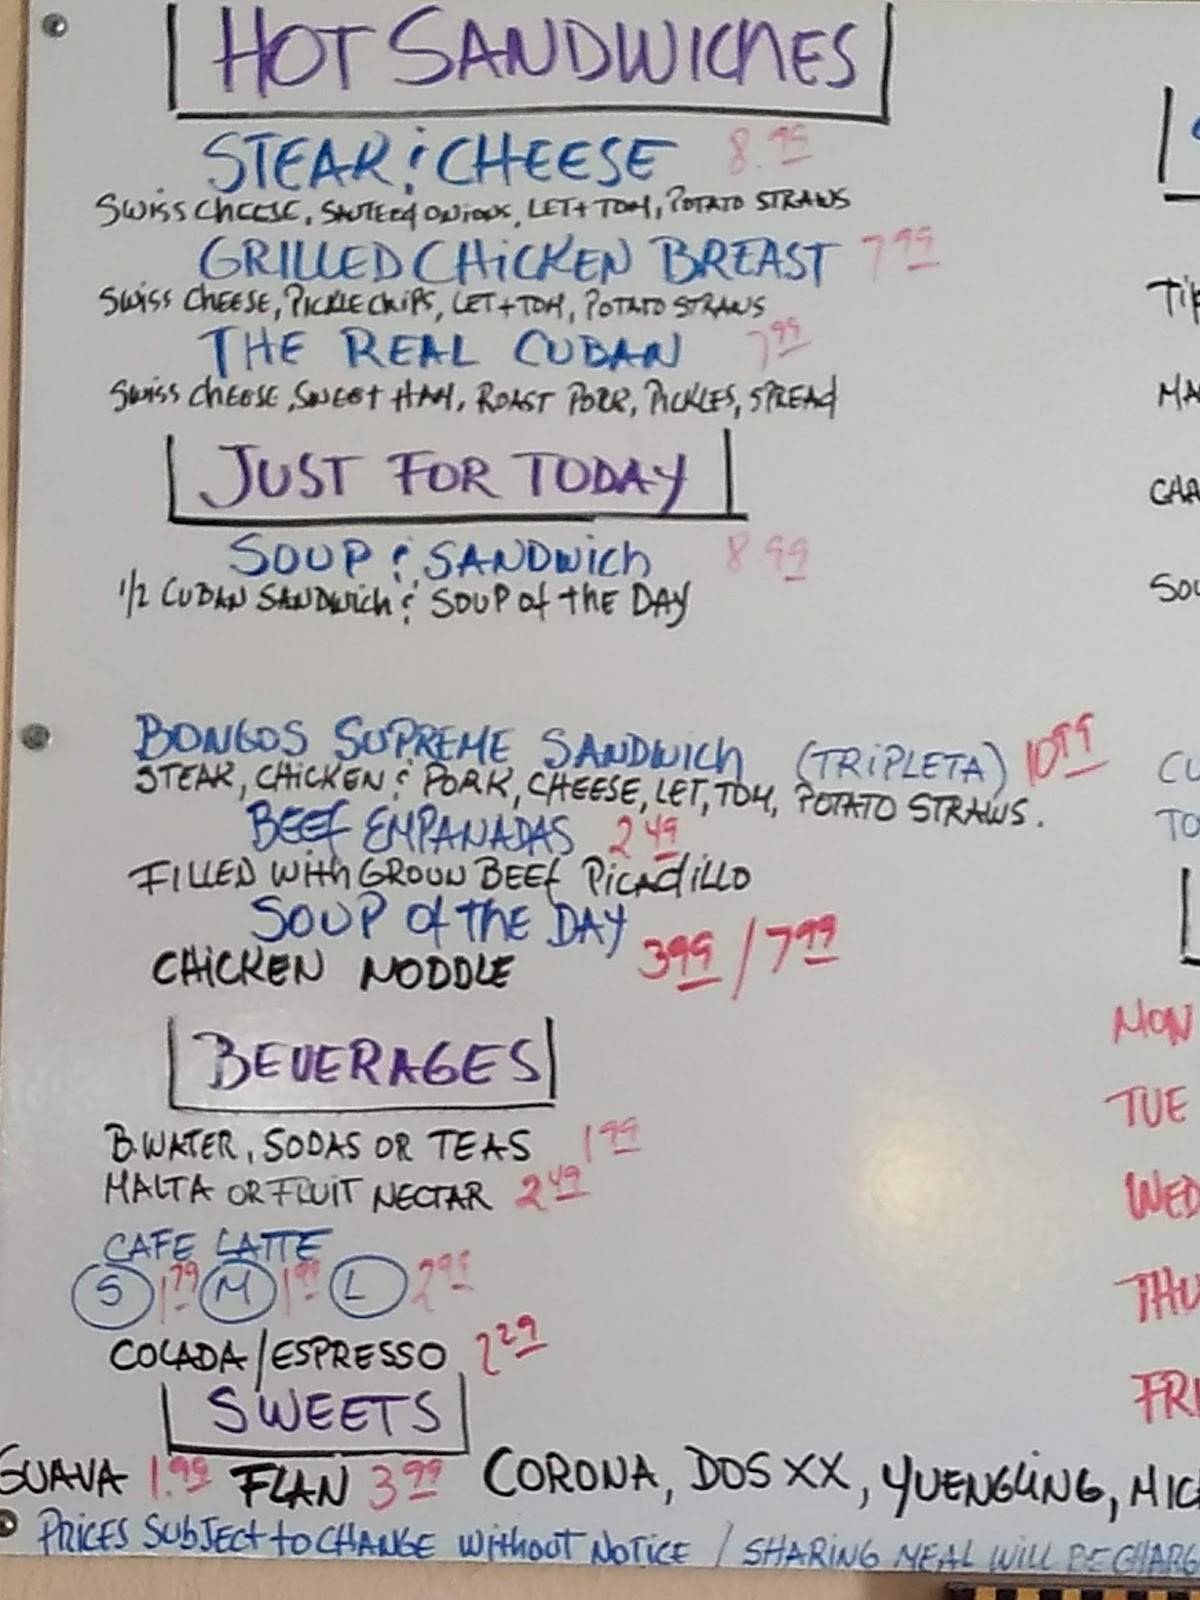 HOT SANDWICHES
STEAK & CHEESE 8.99
SWISS CHEESE, SAUTEED ONIONS, LET + TOM, POTATO STRAWS
GRILLED CHICKEN BREAST 7 99
SWISS CHEESE, PICKLE CHIPS, LET + TOM, POTATO STRAWS
THE REAL CUBAN 7 99
SWISS CHEESE, SWEET HAM, ROAST PORK, PICKLES, SPREAD
JUST FOR TODAY
SOUP & SANDWICH 8 99
1/2 CUBAN SANDWICH & SOUP OF THE DAY
BONGOS SUPREME SANDWICH (TRIPLETA) 10 99
STEAK, CHICKEN & PORK, CHEESE, LET, TOM, POTATO STRAWS.
BEEF EMPANADAS 2 49
FILLED WITH GROUN BEEF PICADILLO
SOUP OF THE DAY 3 99 / 7 99
CHICKEN NODDLE
BEVERAGES
B. WATER, SODAS OR TEAS 1 99
MALTA OR FLUIT NECTAR 2 49
CAFE LATTE
S 1 79 M 1 99 L 2 99
COLADA/ESPRESSO 2 29
SWEETS
GUAVA 1.99 FLAN 3 99 CORONA, DOS XX, YUENGLING, MIC
PRICES SUBJECT TO CHANGE WITHOUT NOTICE / SHARING MEAL WILL BE CHARG
TIP
MA
CHA
SOU
CU
TO
MON
TUE
WED
THU
FRI